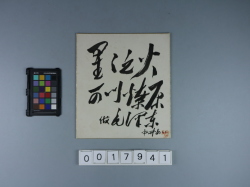 星 泛 火
可 以 燎 原
仿 毛泽东
0017941